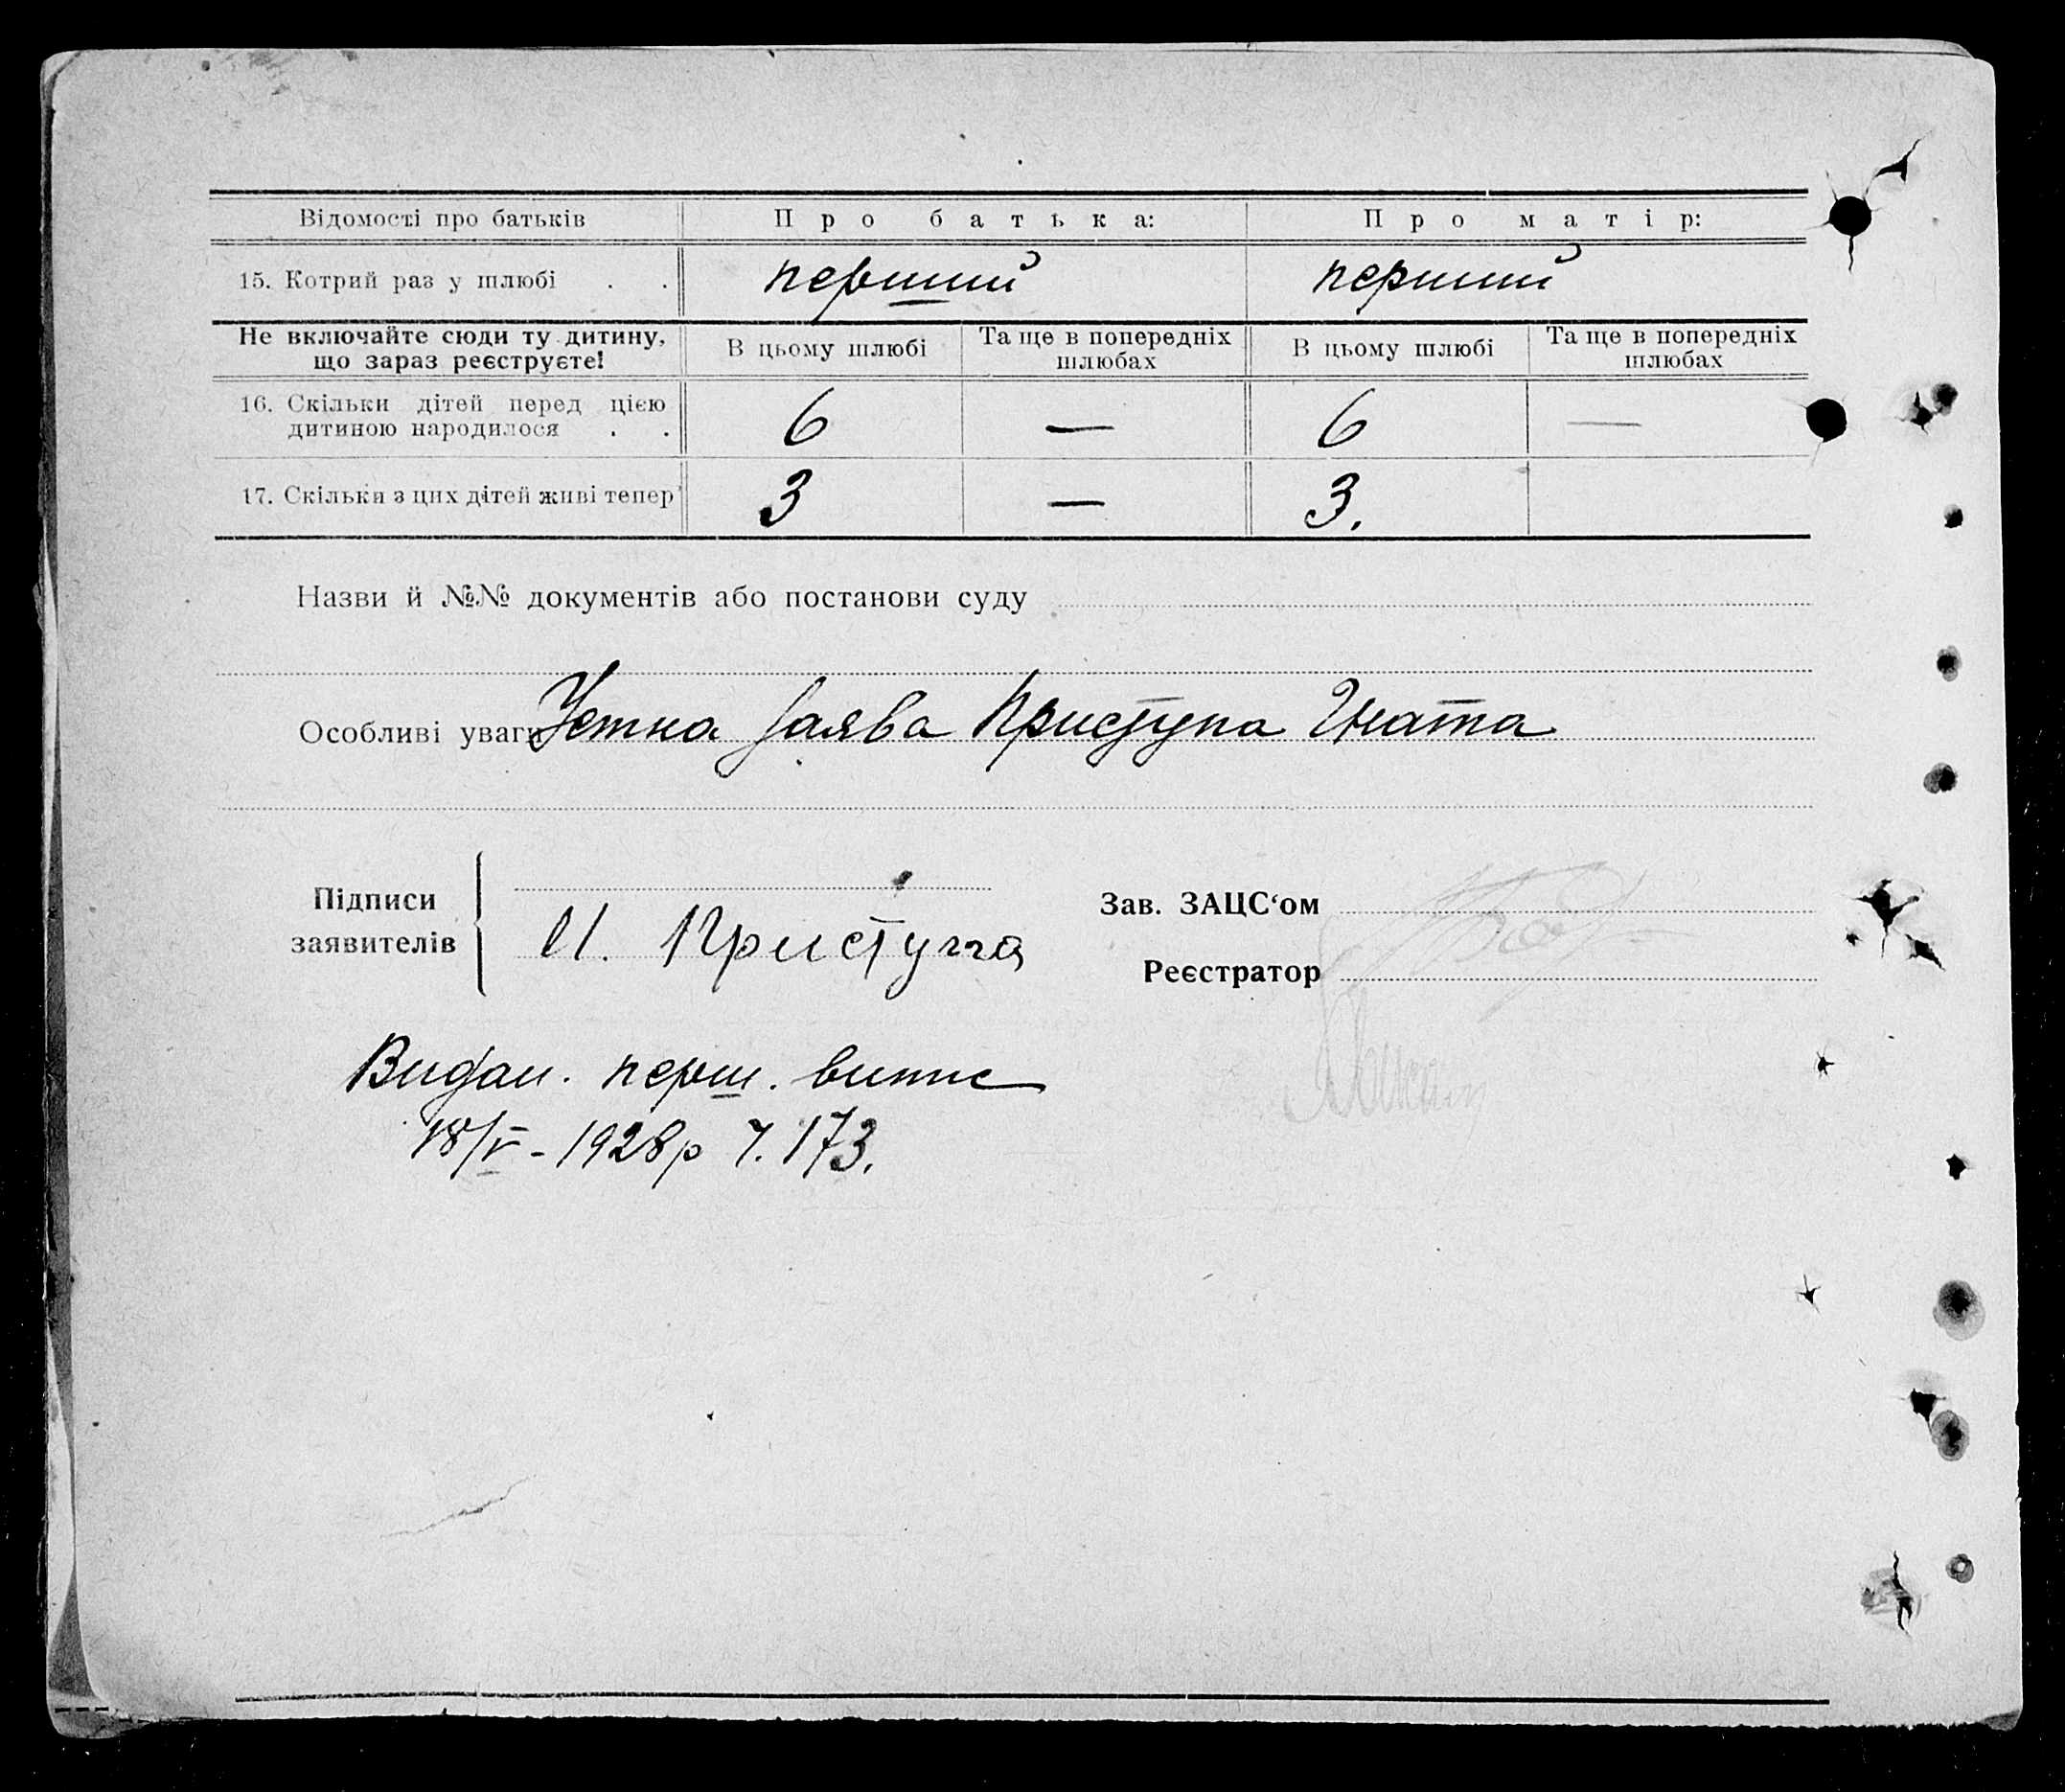 Відомості про батьків П р о б а т ь к а: П р о м а т і р:
15. Котрий раз у шлюбі . . перший перший
Не включайте сюди ту дитину, що зараз реєструєте! В цьому шлюбі Та ще в попередніх шлюбах В цьому шлюбі Та ще в попередніх шлюбах
16. Скільки дітей перед цією дитиною народилося . . 6 — 6 —
17. Скільки з цих дітей живі тепер 3 — 3.
Назви й №№ документів або постанови суду
Особливі уваги Устна заява Приступа Гната
Підписи заявителів И. Приступа
Зав. ЗАЦС‘ом
Реєстратор
Видан. перш. випис
18/V - 1928р Ч. 173.